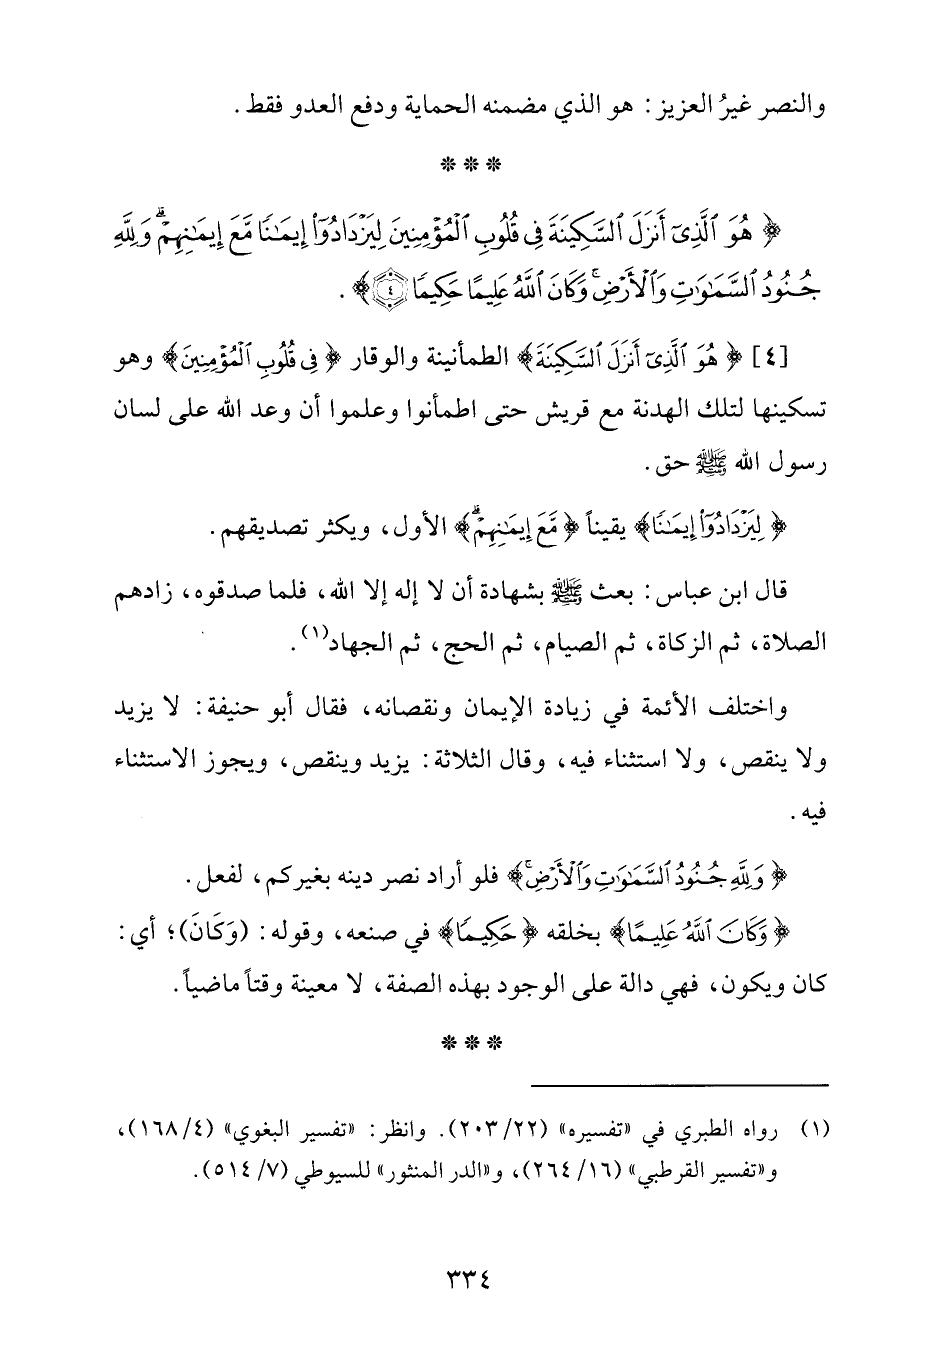 والنصر غيرُ العزيز: هو الذي مضمنه الحماية ودفع العدو فقط.
* * *
﴿ هُوَ ٱلَّذِىٓ أَنزَلَ ٱلسَّكِينَةَ فِى قُلُوبِ ٱلْمُؤْمِنِينَ لِيَزْدَادُوٓا۟ إِيمَـٰنًا مَّعَ إِيمَـٰنِهِمْ ۗ وَلِلَّهِ
جُنُودُ ٱلسَّمَـٰوَٰتِ وَٱلْأَرْضِ ۚ وَكَانَ ٱللَّهُ عَلِيمًا حَكِيمًا ٤ ﴾.
[٤] ﴿ هُوَ ٱلَّذِىٓ أَنزَلَ ٱلسَّكِينَةَ﴾ الطمأنينة والوقار ﴿ فِى قُلُوبِ ٱلْمُؤْمِنِينَ﴾ وهو
تسكينها لتلك الهدنة مع قريش حتى اطمأنوا وعلموا أن وعد الله على لسان
رسول الله ﷺ حق.
﴿ لِيَزْدَادُوٓا۟ إِيمَـٰنًا﴾ يقيناً ﴿ مَّعَ إِيمَـٰنِهِمْ ۗ﴾ الأول، ويكثر تصديقهم.
قال ابن عباس: بعث ﷺ بشهادة أن لا إله إلا الله، فلما صدقوه، زادهم
الصلاة، ثم الزكاة، ثم الصيام، ثم الحج، ثم الجهاد(١).
واختلف الأئمة في زيادة الإيمان ونقصانه، فقال أبو حنيفة: لا يزيد
ولا ينقص، ولا استثناء فيه، وقال الثلاثة: يزيد وينقص، ويجوز الاستثناء
فيه.
﴿ وَلِلَّهِ جُنُودُ ٱلسَّمَـٰوَٰتِ وَٱلْأَرْضِ ۚ﴾ فلو أراد نصر دينه بغيركم، لفعل.
﴿ وَكَانَ ٱللَّهُ عَلِيمًا﴾ بخلقه ﴿ حَكِيمًا﴾ في صنعه، وقوله: (وَكَانَ)؛ أي:
كان ويكون، فهي دالة على الوجود بهذه الصفة، لا معينة وقتاً ماضياً.
* * *
(١) رواه الطبري في «تفسيره» (٢٢/ ٢٠٣). وانظر: «تفسير البغوي» (٤/ ١٦٨)،
و«تفسير القرطبي» (١٦/ ٢٦٤)، و«الدر المنثور» للسيوطي (٧/ ٥١٤).
٣٣٤